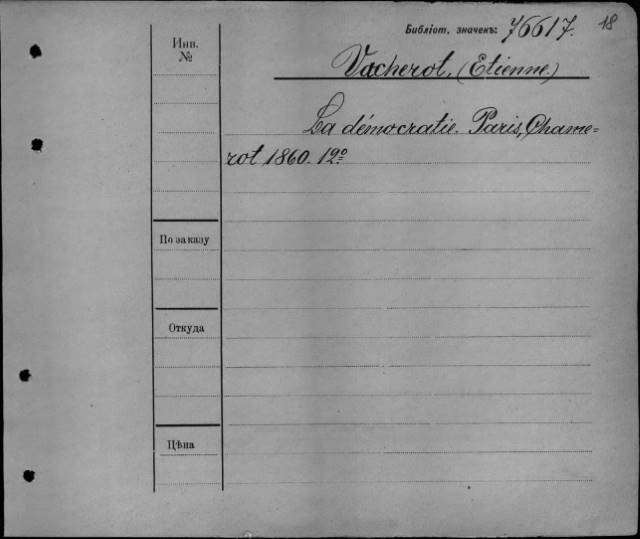 Библіот. значекъ: 76617. 18
Инв.
№
Vacherot, (Etienne.)
La démocratie. Paris, Chame=
rot 1860. 12º
По заказу
Откуда
Цѣна